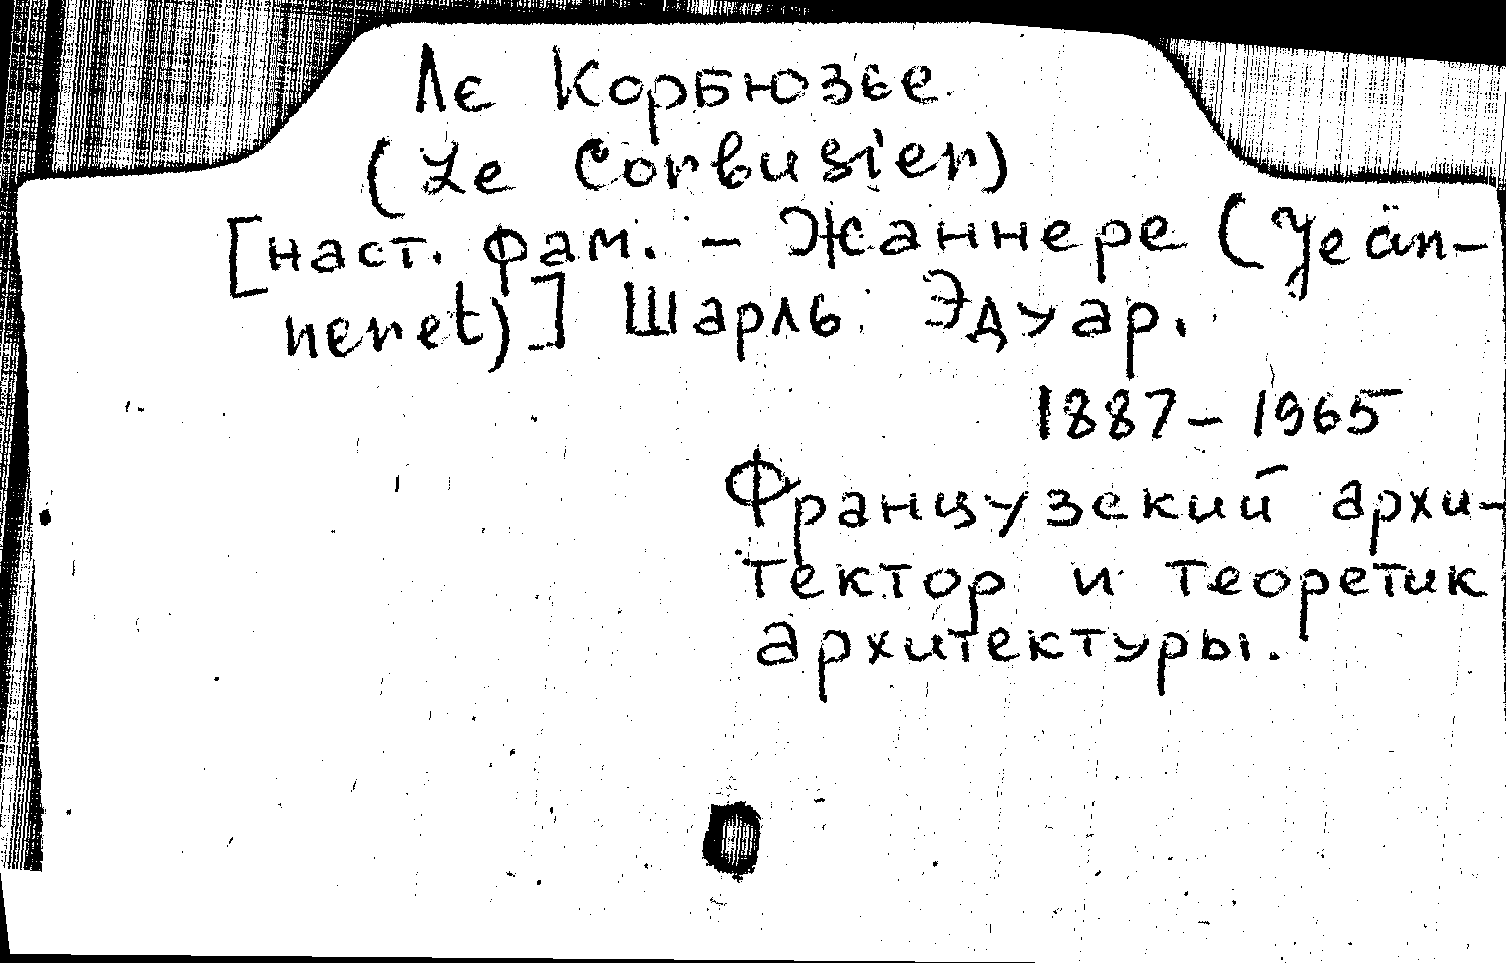 Ле Корбюзье
(Le Corbusier)
[наст. фам. – Жаннере (Jean-
neret)] Шарль Эдуар.
1887 – 1965
Французский архи-
тектор и теоретик
архитектуры.